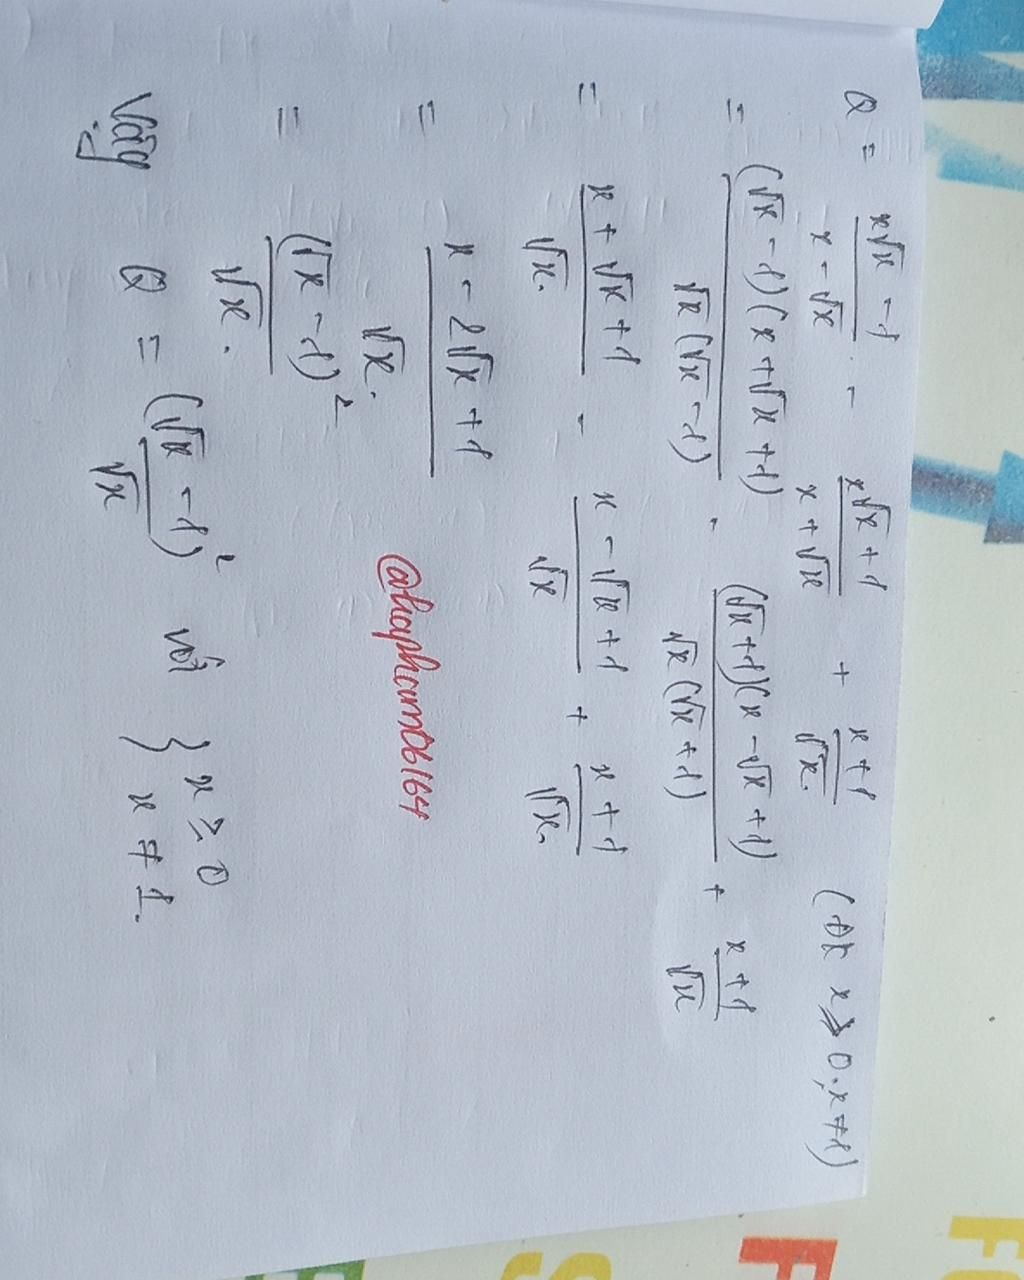 Q = \frac{x\sqrt{x} - 1}{x - \sqrt{x}} - \frac{x\sqrt{x} + 1}{x + \sqrt{x}} + \frac{x + 1}{\sqrt{x}} (ĐK x ≥ 0; x ≠ 1)
= \frac{(\sqrt{x} - 1)(x + \sqrt{x} + 1)}{\sqrt{x}(\sqrt{x} - 1)} - \frac{(\sqrt{x} + 1)(x - \sqrt{x} + 1)}{\sqrt{x}(\sqrt{x} + 1)} + \frac{x + 1}{\sqrt{x}}
= \frac{x + \sqrt{x} + 1}{\sqrt{x}} - \frac{x - \sqrt{x} + 1}{\sqrt{x}} + \frac{x + 1}{\sqrt{x}}
= \frac{x - 2\sqrt{x} + 1}{\sqrt{x}}
@hapham06164
= \frac{(\sqrt{x} - 1)^2}{\sqrt{x}}
Vậy Q = \frac{(\sqrt{x} - 1)^2}{\sqrt{x}} với { x ≥ 0
x ≠ 1.